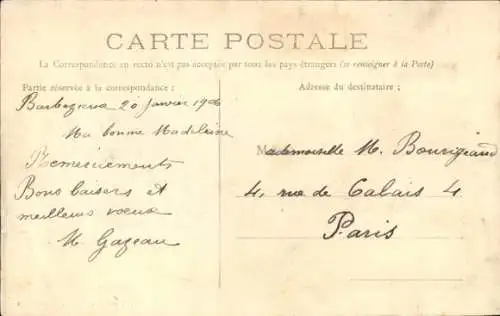 CARTE POSTALE
La Correspondance au recto n'est pas acceptée par tous les pays étrangers (se renseigner à la Poste)
Partie réservée à la correspondance :
Adresse du destinataire :
Barbezieux 20 janvier 190
Ma bonne Madeleine
Remerciements
Bons baisers et
meilleurs vœux
M. Gazeau
Mademoiselle M. Bourigeaud
4, rue de Calais 4
Paris